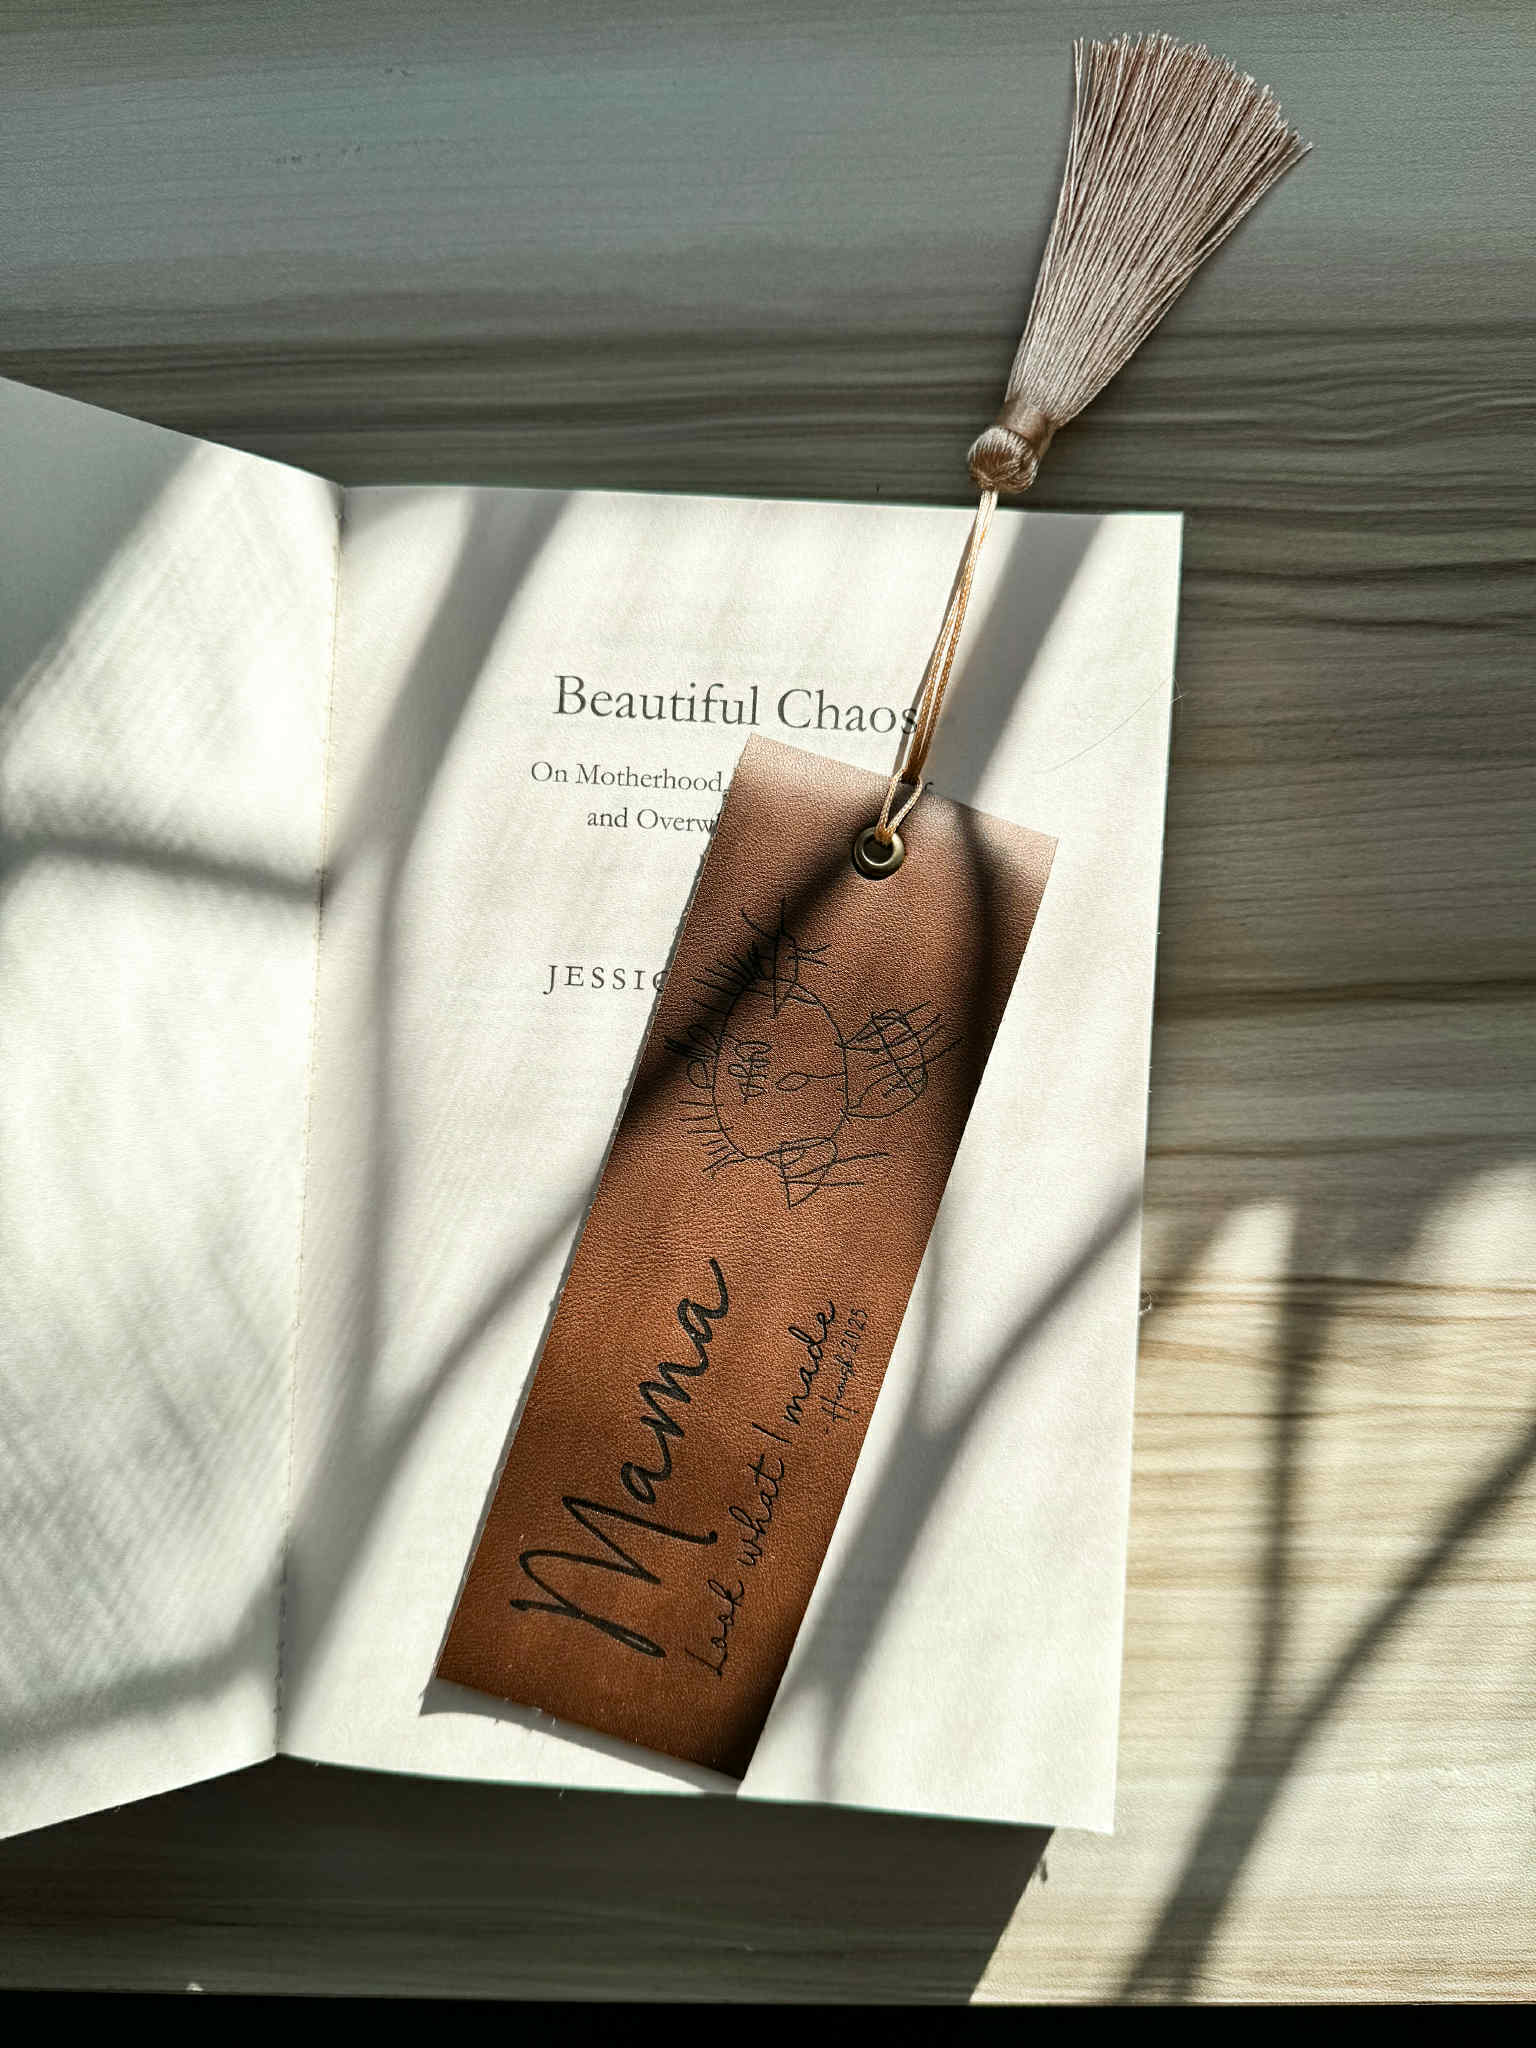 Beautiful Chaos
On Motherhood,
and Overw
JESSIC
Mama
Look what I made
- Hannah 2025